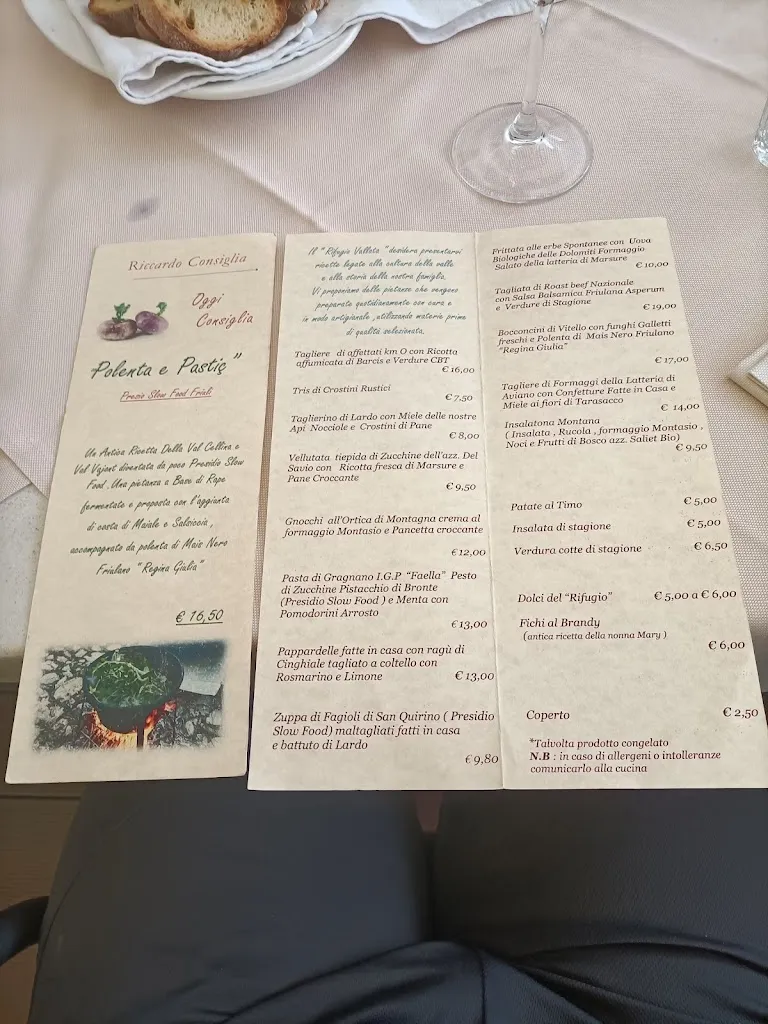 Riccardo Consiglia
Oggi
Consiglia
"Polenta e Pastiç"
Presio Slow Food Friuli
Un Antica Ricetta Della Val Cellina e
Val Vajont diventata da poco Presidio Slow
Food. Una pietanza a Base di Rape
fermentate e proposta con l'aggiunta
di costa di Maiale e Salsiccia,
accompagnato da polenta di Mais Nero
Friulano "Regina Giulia"
€ 16,50
Il "Rifugio Vallata" desidera presentarvi
ricette legate alla cultura della valle
e alla storia della nostra famiglia.
Vi proponiamo delle pietanze che vengono
preparate quotidianamente con cura e
in modo artigianale, utilizzando materie prime
di qualità selezionata.
Tagliere di affettati km 0 con Ricotta
affumicata di Barcis e Verdure CBT
€ 16,00
Tris di Crostini Rustici
€ 7,50
Taglierino di Lardo con Miele delle nostre
Api Nocciole e Crostini di Pane
€ 8,00
Vellutata tiepida di Zucchine dell'azz. Del
Savio con Ricotta fresca di Marsure e
Pane Croccante
€ 9,50
Gnocchi all'Ortica di Montagna crema al
formaggio Montasio e Pancetta croccante
€ 12,00
Pasta di Gragnano I.G.P "Faella" Pesto
di Zucchine Pistacchio di Bronte
(Presidio Slow Food ) e Menta con
Pomodorini Arrosto
€ 13,00
Pappardelle fatte in casa con ragù di
Cinghiale tagliato a coltello con
Rosmarino e Limone € 13,00
Zuppa di Fagioli di San Quirino ( Presidio
Slow Food) maltagliati fatti in casa
e battuto di Lardo
€ 9,80
Frittata alle erbe Spontanee con Uova
Biologiche delle Dolomiti Formaggio
Salato della latteria di Marsure
€ 10,00
Tagliata di Roast beef Nazionale
con Salsa Balsamica Friulana Asperum
e Verdure di Stagione
€ 19,00
Bocconcini di Vitello con funghi Galletti
freschi e Polenta di Mais Nero Friulano
"Regina Giulia"
€ 17,00
Tagliere di Formaggi della Latteria di
Aviano con Confetture Fatte in Casa e
Miele ai fiori di Tarasacco
€ 14,00
Insalatona Montana
( Insalata , Rucola , formaggio Montasio ,
Noci e Frutti di Bosco azz. Saliet Bio)
€ 9,50
Patate al Timo € 5,00
Insalata di stagione € 5,00
Verdura cotte di stagione € 6,50
Dolci del "Rifugio" € 5,00 a € 6,00
Fichi al Brandy
(antica ricetta della nonna Mary )
€ 6,00
Coperto € 2,50
*Talvolta prodotto congelato
N.B : in caso di allergeni o intolleranze
comunicarlo alla cucina